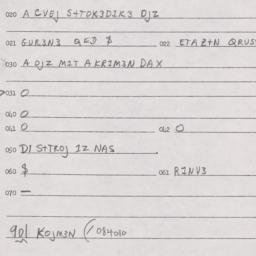 020 A CVEJ S+TOK3DIK3 OJZ
021 GUR3N3 $ 022 ETAZ+N QRUS
030 A OJZ M1T A KR1M3N DAX
031 0
040 0
041 0 042 0
050 DI S+TROJ 1Z NAS
060 $ 061 R1NV3
070 —
901 KOJM3N (/ 084010